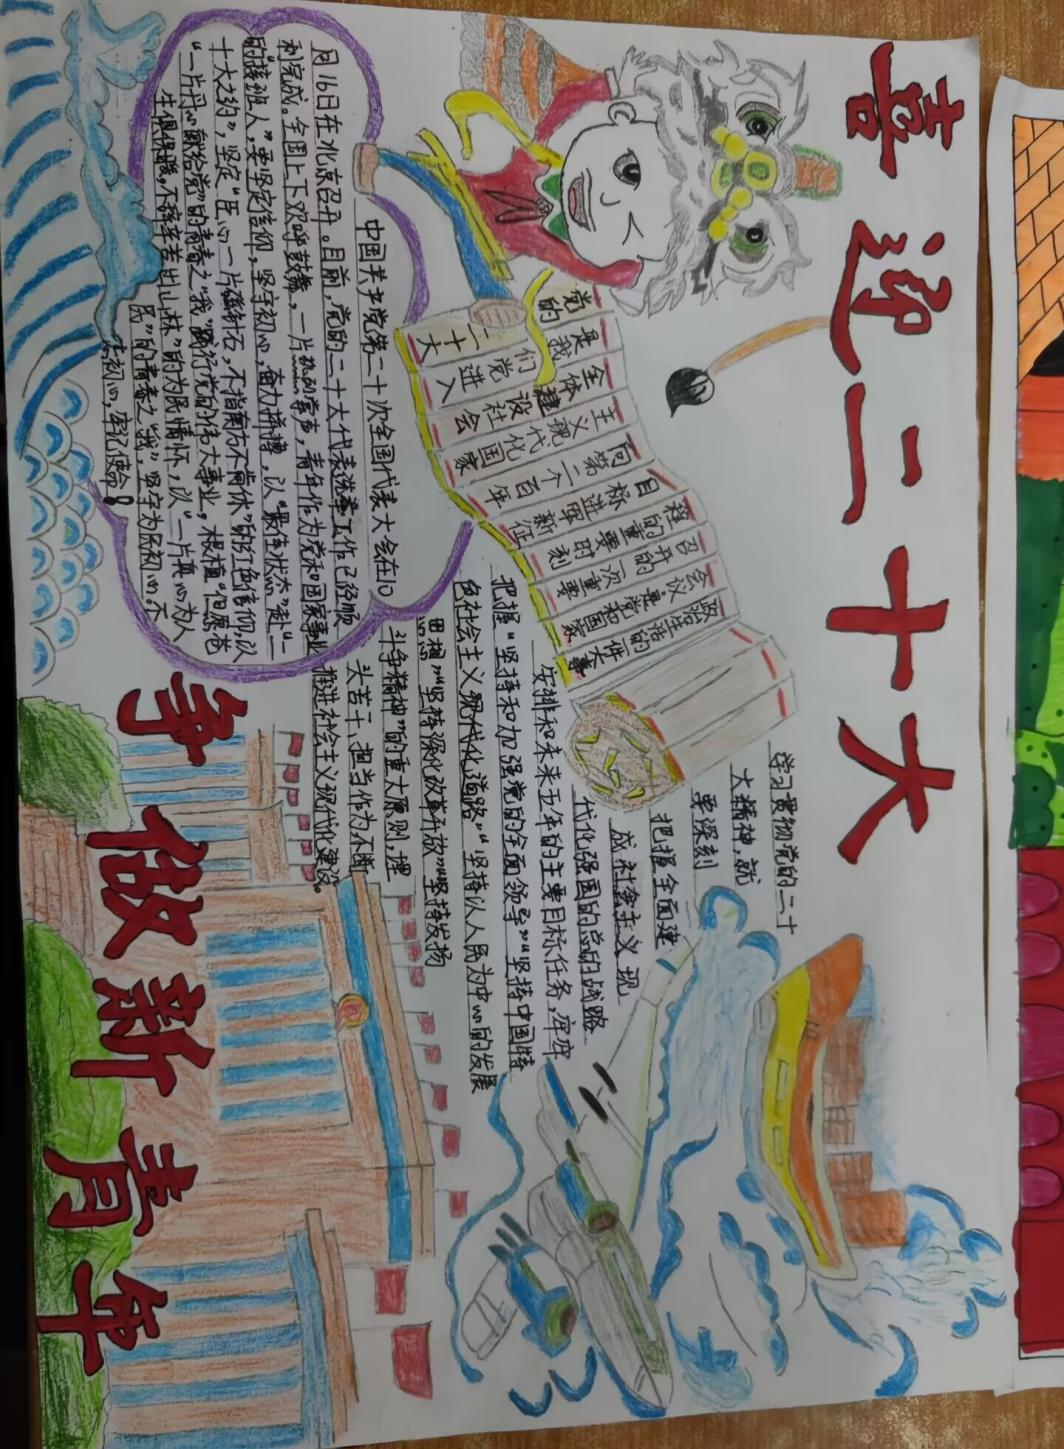 喜迎二十大
党的二十大
是我们党进入
全体建设社会
主义现代化国家
向第二个百年
目标进军新征
程的重要时刻
召开的一次重要
会议是党和国家
政治生活的
一件大事
中国共产党第二十次全国代表大会在10
月16日在北京召开。目前,党的二十大代表选举工作已经顺
利完成。全国上下欢呼鼓舞,一片
掌声,青年作为党和国家事业
的"接班人"要坚定信仰,坚守初心,奋力拼搏,以"最佳状态"赴"二
十大之约",坚定"臣心一片磁针石,不指南方不肯休"的红色信仰,以
"一片丹心献给党"的青春之"我"践行党的伟大事业,根植"但愿苍
生俱保暖,不辞辛苦出山林"的为民情怀,以"一片真心为人
民"的青春之"我",坚守为民初心,不
忘初心,牢记使命!
学习贯彻党的二十
大精神,就
要深刻
把握全面建
成社会主义现
代化强国的总的战略
安排和未来五年的主要目标任务,牢牢
把握"坚持和加强党的全面领导""坚持中国特
色社会主义现代化道路""坚持以人民为中心的发展
思想""坚持深化改革开放""坚持发扬
斗争精神"的重大原则,埋
头苦干、担当作为不断
推进社会主义现代化建设。
争做新青年